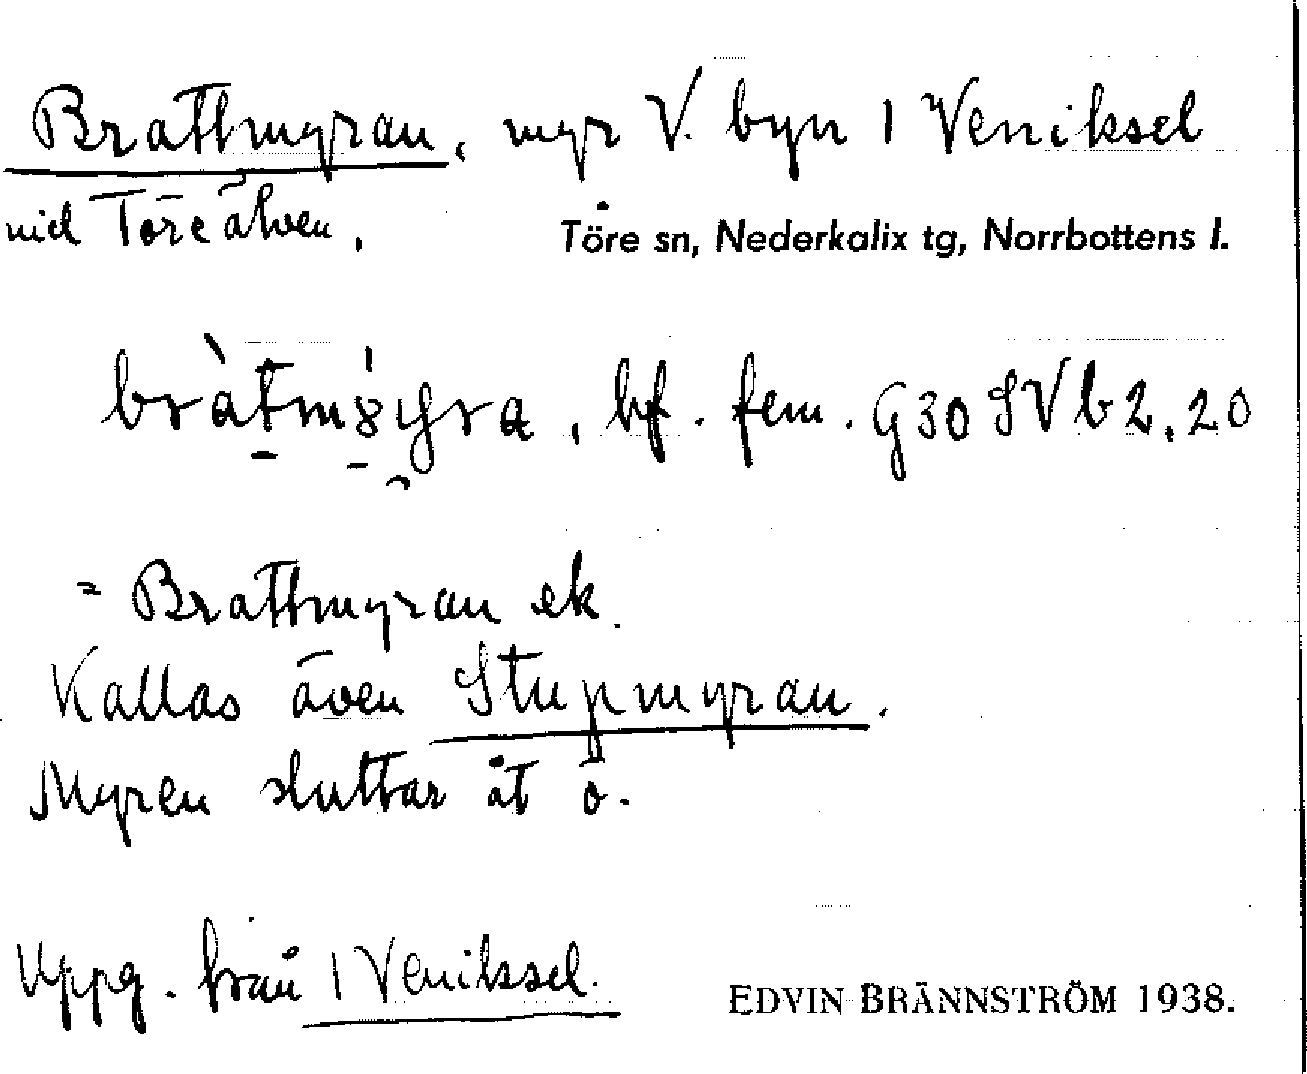 Brattmyran, myr V. byn 1 Veniksel
vid Töreälven.
Töre sn, Nederkalix tg, Norrbottens l.
bf. fem. G30 SV b 2,20
= Brattmyran ek.
Kallas även Stupmyran.
Myren sluttar åt ö.
Uppg. från 1 Veniksel.
EDVIN BRÄNNSTRÖM 1938.